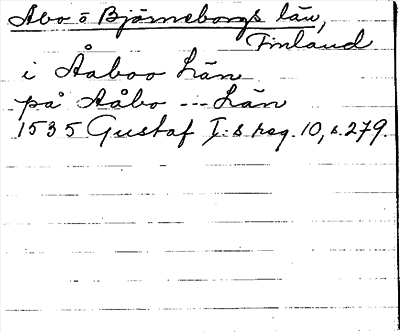 Åbo o Björneborgs län,
Finland
i Ååboo Län
på Aåbo --- Län
1535 Gustaf I:s reg. 10, s. 279.